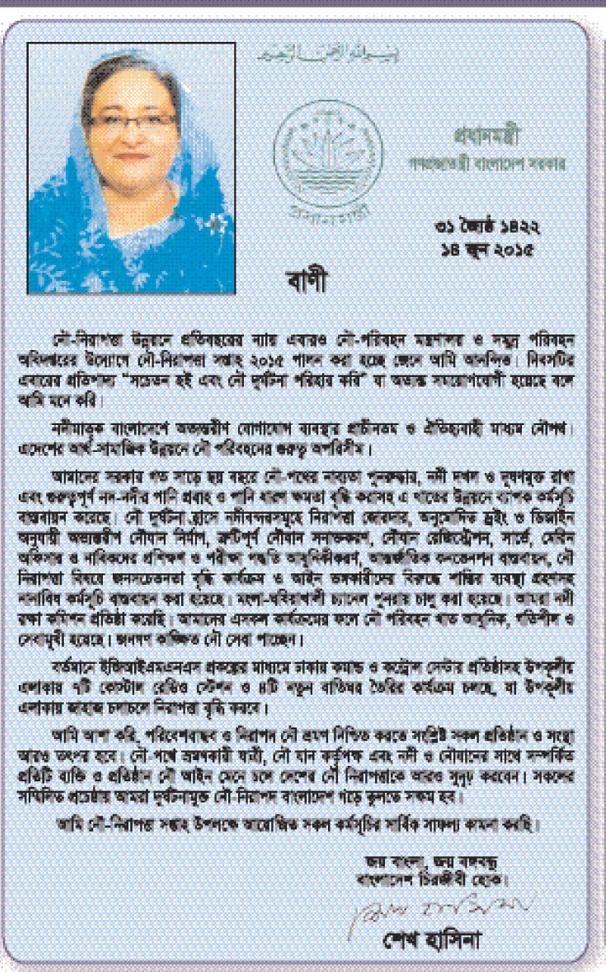 প্রধানমন্ত্রী
গণপ্রজাতন্ত্রী বাংলাদেশ সরকার
প্রধানমন্ত্রী
৩১ জ্যৈষ্ঠ ১৪২২
১৪ জুন ২০১৫
বাণী
নৌ-নিরাপত্তা উন্নয়নে প্রতিবছরের ন্যায় এবারও নৌ-পরিবহন মন্ত্রণালয় ও সমুদ্র পরিবহন
অধিদপ্তরের উদ্যোগে নৌ-নিরাপত্তা সপ্তাহ ২০১৫ পালন করা হচ্ছে জেনে আমি আনন্দিত। দিবসটির
এবারের প্রতিপাদ্য “সচেতন হই এবং নৌ দুর্ঘটনা পরিহার করি” যা অত্যন্ত সময়োপযোগী হয়েছে বলে
আমি মনে করি।
নদীমাতৃক বাংলাদেশে অভ্যন্তরীণ যোগাযোগ ব্যবস্থার প্রাচীনতম ও ঐতিহ্যবাহী মাধ্যম নৌপথ।
এদেশের আর্থ-সামাজিক উন্নয়নে নৌ পরিবহনের গুরুত্ব অপরিসীম।
আমাদের সরকার গত সাড়ে ছয় বছরে নৌ-পথের নাব্যতা পুনরুদ্ধার, নদী দখল ও দূষণমুক্ত রাখা
এবং গুরুত্বপূর্ণ নদ-নদীর পানি প্রবাহ ও পানি ধারণ ক্ষমতা বৃদ্ধি করাসহ এ খাতের উন্নয়নে ব্যাপক কর্মসূচি
বাস্তবায়ন করেছে। নৌ দুর্ঘটনা হ্রাসে নদীবন্দরসমূহে নিরাপত্তা জোরদার, অনুমোদিত ড্রইং ও ডিজাইন
অনুযায়ী অভ্যন্তরীণ নৌযান নির্মাণ, ত্রুটিপূর্ণ নৌযান সনাক্তকরণ, নৌযান রেজিস্ট্রেশন, সার্ভে, মেরিন
অফিসার ও নাবিকদের প্রশিক্ষণ ও পরীক্ষা পদ্ধতি আধুনিকীকরণ, আন্তর্জাতিক কনভেনশন বাস্তবায়ন, নৌ
নিরাপত্তা বিষয়ে জনসচেতনতা বৃদ্ধি কার্যক্রম ও আইন ভঙ্গকারীদের বিরুদ্ধে শাস্তির ব্যবস্থা গ্রহণসহ
নানাবিধ কর্মসূচি বাস্তবায়ন করা হয়েছে। মংলা-ঘষিয়াখালী চ্যানেল পুনরায় চালু করা হয়েছে। আমরা নদী
রক্ষা কমিশন প্রতিষ্ঠা করেছি। আমাদের এসকল কার্যক্রমের ফলে নৌ পরিবহন খাত আধুনিক, গতিশীল ও
সেবামুখী হয়েছে। জনগণ কাঙ্ক্ষিত নৌ সেবা পাচ্ছেন।
বর্তমানে ইজিআইএমএনএস প্রকল্পের মাধ্যমে ঢাকায় কমান্ড ও কন্ট্রোল সেন্টার প্রতিষ্ঠাসহ উপকূলীয়
এলাকায় ৭টি কোস্টাল রেডিও স্টেশন ও ৪টি নতুন বাতিঘর তৈরির কার্যক্রম চলছে, যা উপকূলীয়
এলাকায় জাহাজ চলাচলে নিরাপত্তা বৃদ্ধি করবে।
আমি আশা করি, পরিবেশবান্ধব ও নিরাপদ নৌ ভ্রমণ নিশ্চিত করতে সংশ্লিষ্ট সকল প্রতিষ্ঠান ও সংস্থা
আরও তৎপর হবে। নৌ-পথে ভ্রমণকারী যাত্রী, নৌ যান কর্তৃপক্ষ এবং নদী ও নৌযানের সাথে সম্পর্কিত
প্রতিটি ব্যক্তি ও প্রতিষ্ঠান নৌ আইন মেনে চলে দেশের নৌ নিরাপত্তাকে আরও সুদৃঢ় করবেন। সকলের
সম্মিলিত প্রচেষ্টায় আমরা দুর্ঘটনামুক্ত নৌ-নিরাপদ বাংলাদেশ গড়ে তুলতে সক্ষম হব।
আমি নৌ-নিরাপত্তা সপ্তাহ উপলক্ষে আয়োজিত সকল কর্মসূচির সার্বিক সাফল্য কামনা করছি।
জয় বাংলা, জয় বঙ্গবন্ধু
বাংলাদেশ চিরজীবী হোক।
শেখ হাসিনা